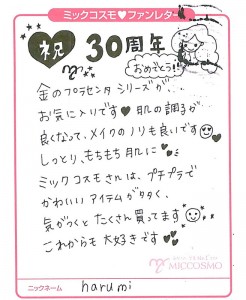 ミックコスモ♥ファンレター
祝 30周年
おめでとう!
金のプラセンタ シリーズが、
お気に入りです♥ 肌の調子が
良くなって、メイクのノリも良いです
しっとり、もちもち肌に
ミックコスモさんは、プチプラで
かわいいアイテムがタタく、
気がつくと たくさん買ってます
これからも 大好きです
MICCOSMO
ニックネーム harumi